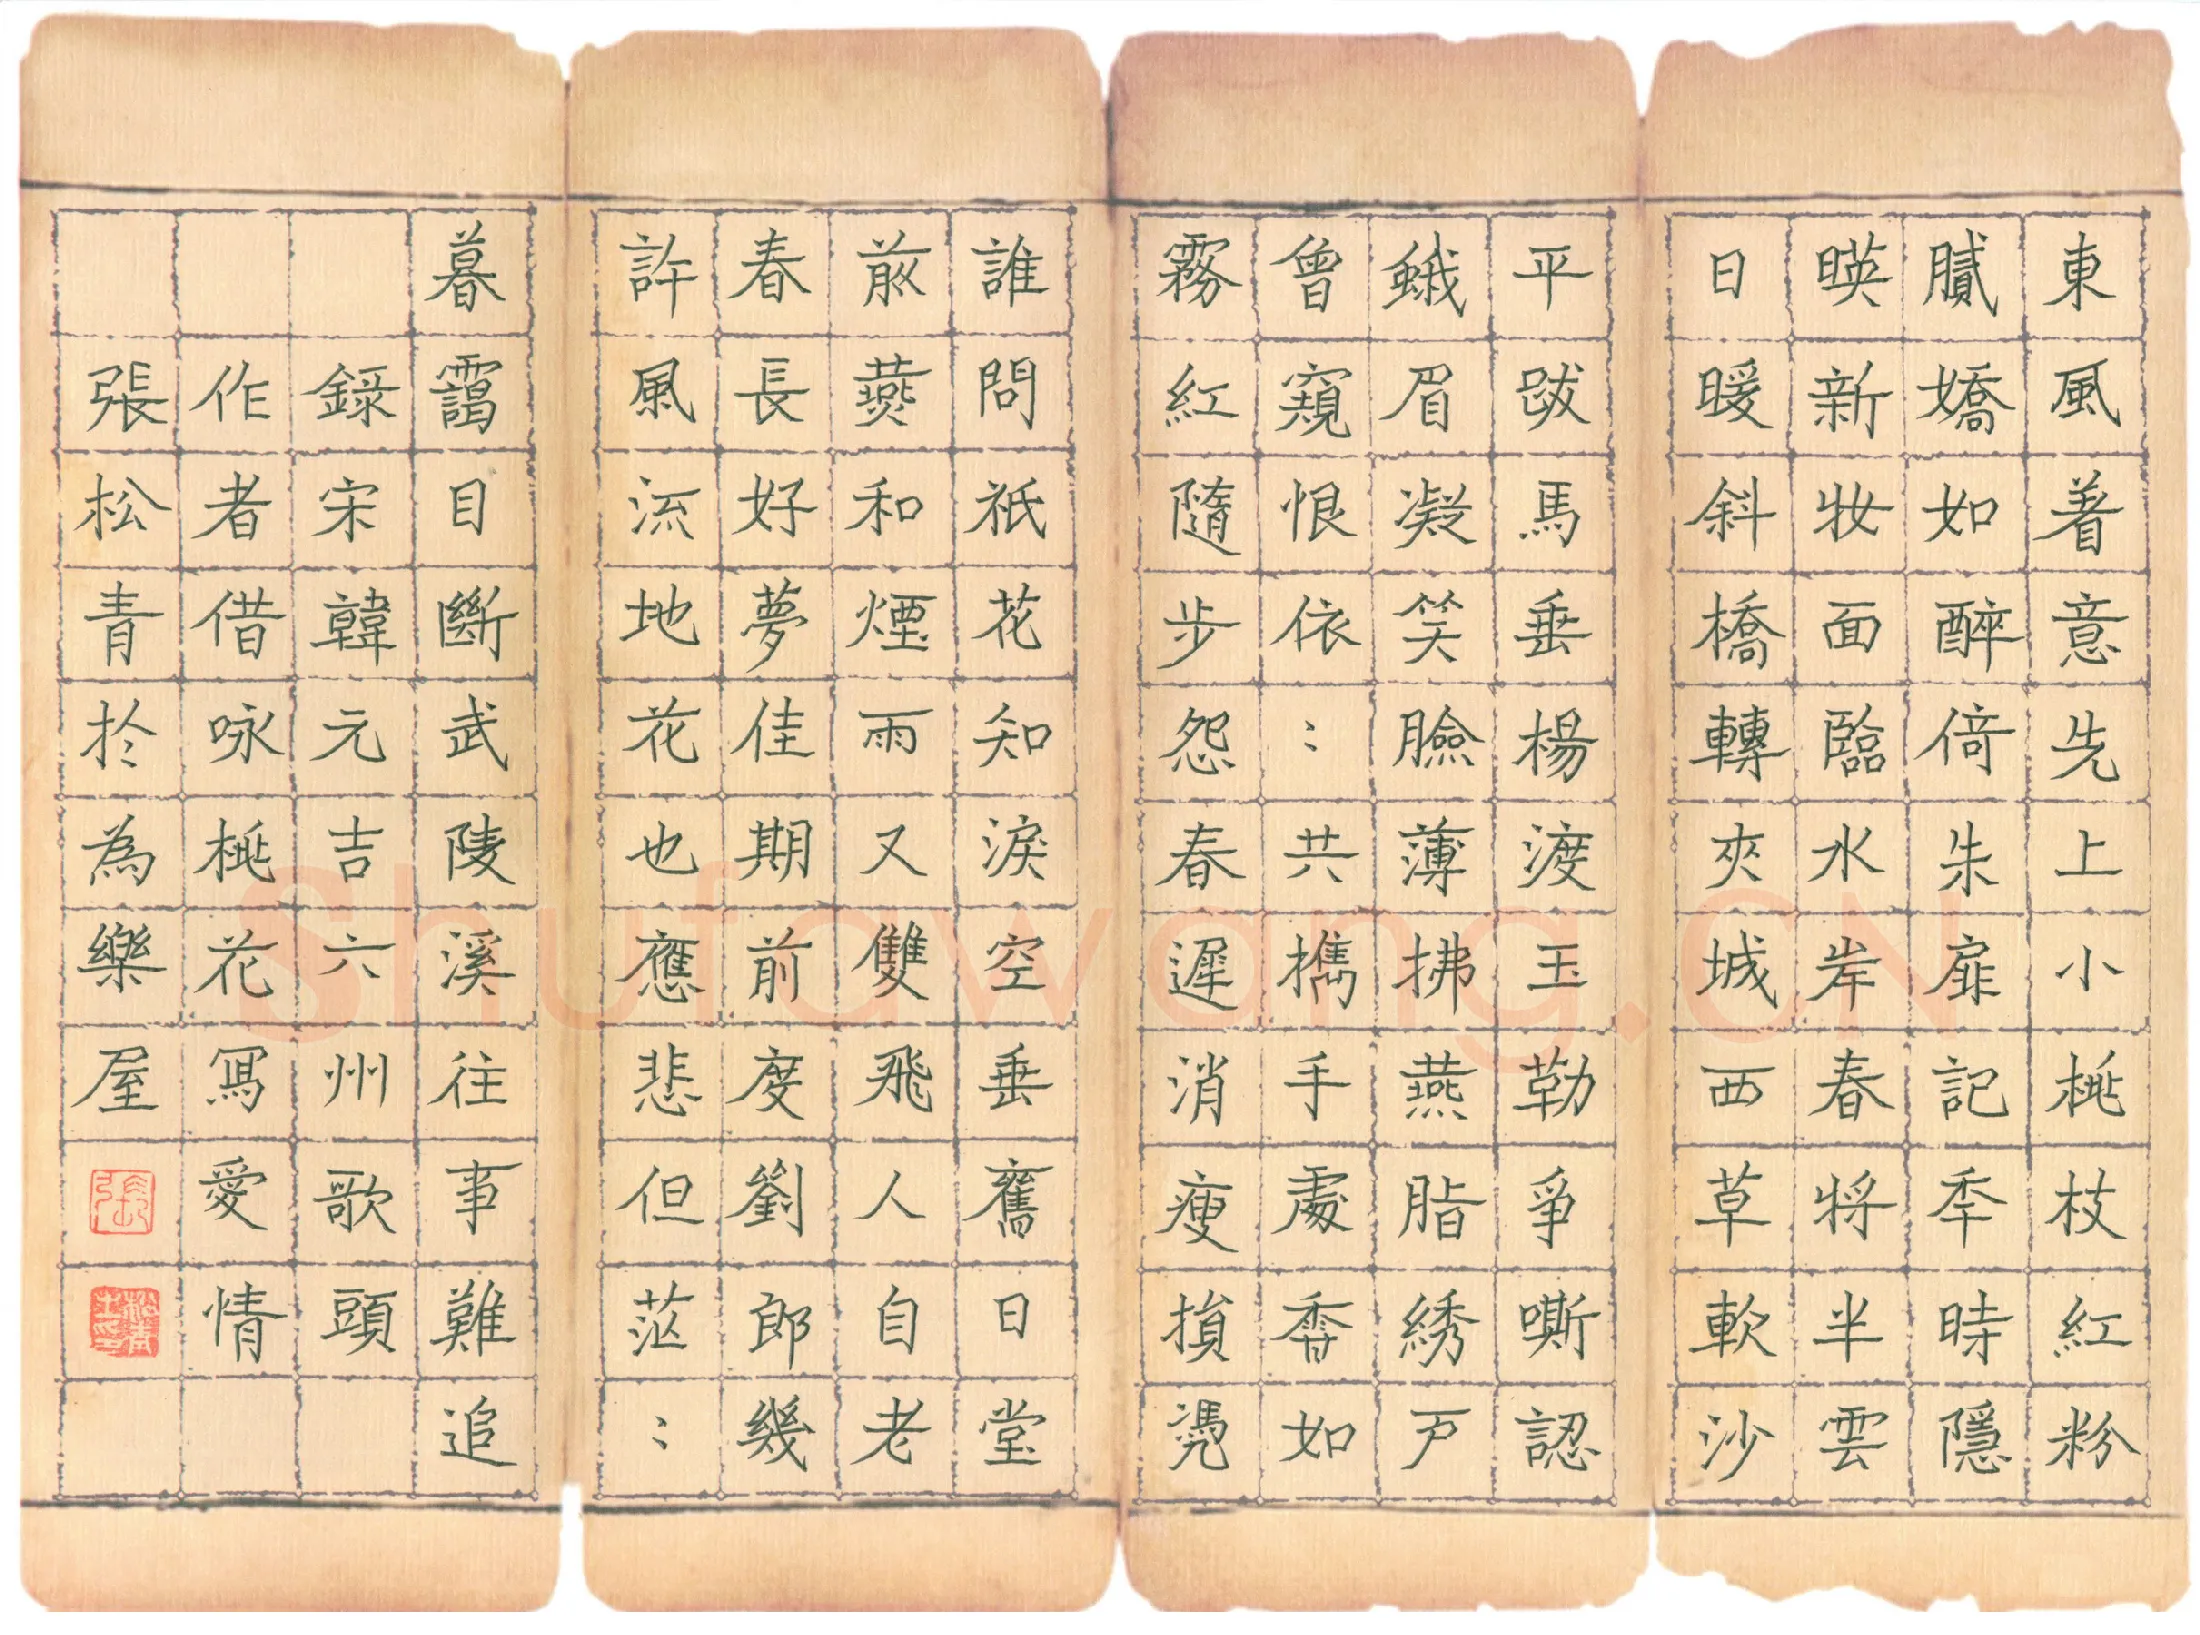 東風着意先上小桃枝紅粉
膩嬌如醉倚朱扉記秊時隱
暎新妝面臨水岸春將半雲
日暖斜橋轉夾城西草軟沙
平跋馬垂楊渡玉勒爭嘶認
蛾眉凝笑臉薄拂燕脂綉戶
曾窺恨依：共攜手處香如
霧紅隨步怨春遲消瘦損凴
誰問衹花知淚空垂舊日堂
前燕和煙雨又雙飛人自老
春長好夢佳期前度劉郎幾
許風流地花也應悲但茫：
暮靄目斷武陵溪往事難追
錄宋韓元吉六州歌頭
作者借咏桃花寫愛情
張松青於為樂屋
張
Shufawang.CN